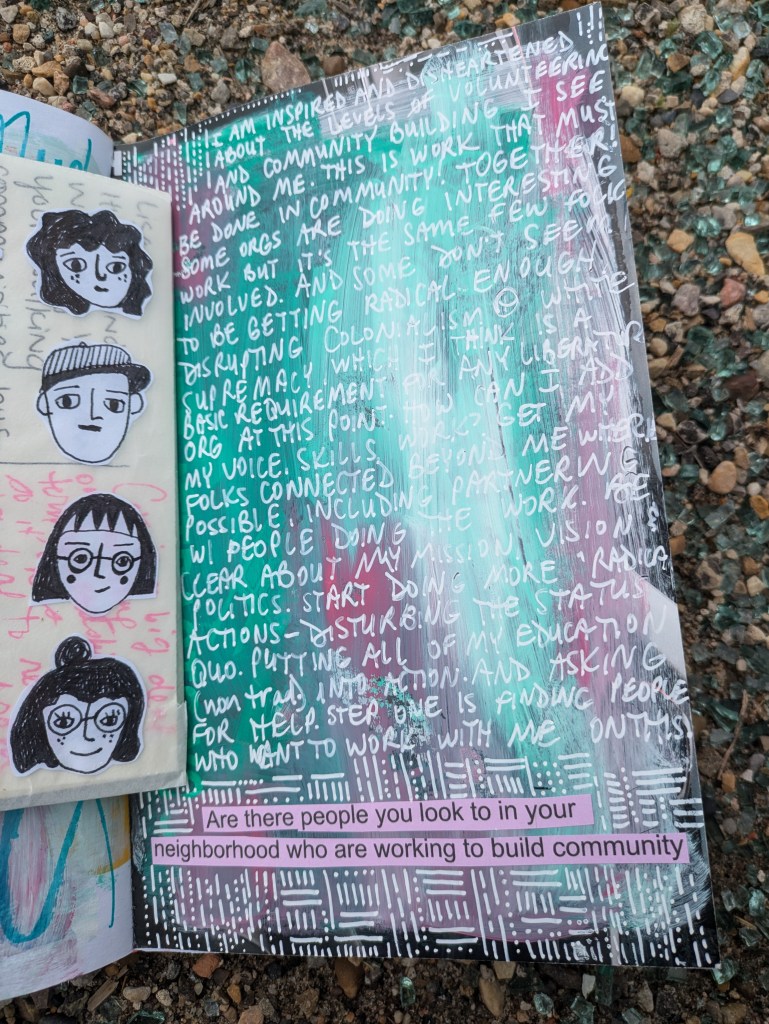 I AM INSPIRED AND DISHEARTENED
ABOUT THE LEVELS OF VOLUNTEERING
AND COMMUNITY BUILDING I SEE
AROUND ME. THIS IS WORK THAT MUST
BE DONE IN COMMUNITY. TOGETHER!
SOME ORGS ARE DOING INTERESTING
WORK BUT IT'S THE SAME FEW FOLKS
INVOLVED. AND SOME DON'T SEEM
TO BE GETTING RADICAL ENOUGH
DISRUPTING COLONIALISM & WHITE
SUPREMACY WHICH I THINK IS A
BASIC REQUIREMENT FOR ANY LIBERATORY
ORG AT THIS POINT. HOW CAN I ADD
MY VOICE. SKILLS. WORK? GET MY
FOLKS CONNECTED BEYOND ME WHERE
POSSIBLE. INCLUDING PARTNERING
W/ PEOPLE DOING THE WORK. BE
CLEAR ABOUT MY MISSION, VISION &
POLITICS. START DOING MORE "RADICAL
ACTIONS - DISTURBING THE STATUS
QUO. PUTTING ALL OF MY EDUCATION
(non trad) INTO ACTION. AND ASKING
FOR HELP. STEP ONE IS FINDING PEOPLE
WHO WANT TO WORK WITH ME ON THIS
Are there people you look to in your
neighborhood who are working to build community